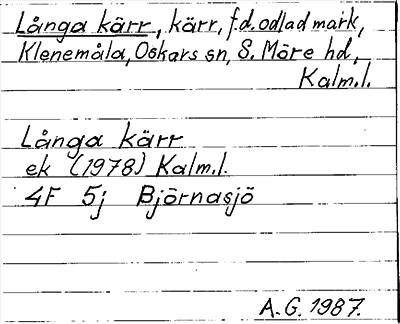 Långa kärr, kärr, f.d. odlad mark,
Klenemåla, Oskars sn, S. Möre hd,
Kalm.l.
Långa kärr
ek (1978) Kalm.l.
4F 5j Björnasjö
A.G. 1987.